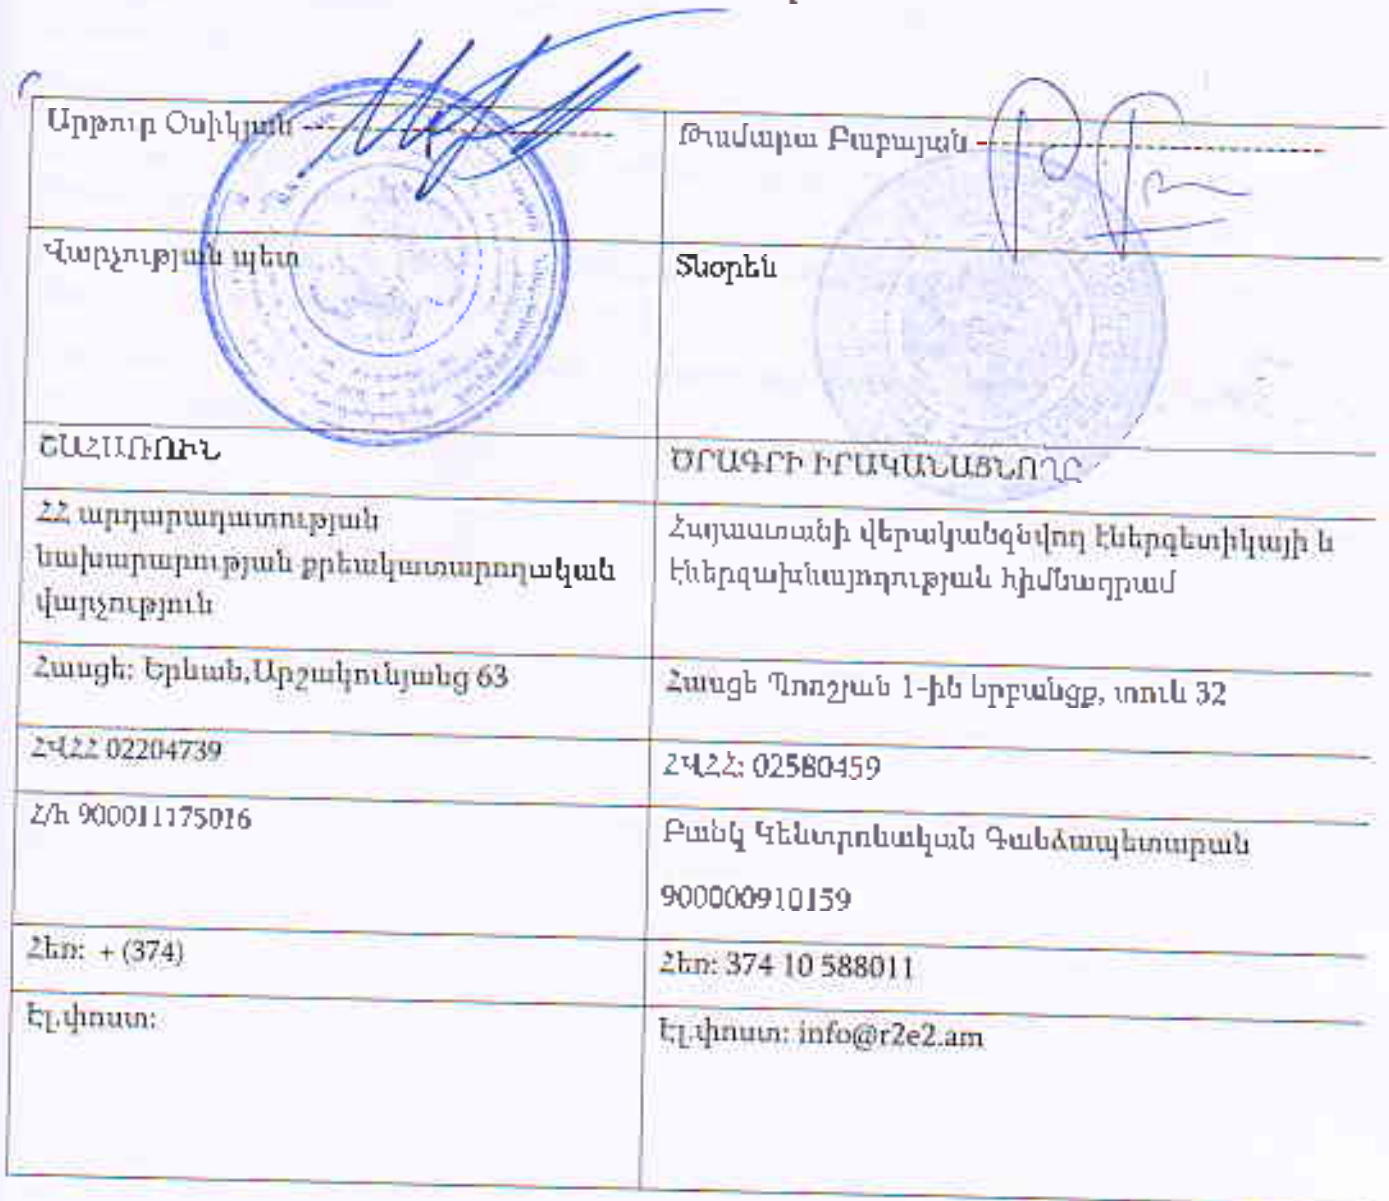 Արթուր Օսիկյան
Թամարա Բաբայան
Վարչության պետ
Տնօրեն
ՇԱՀԱՌՈՒՆ
ԾՐԱԳՐԻ ԻՐԱԿԱՆԱՑՆՈՂԸ
ՀՀ արդարադատության
նախարարության քրեակատարողական
վարչություն
Հայաստանի վերականգնվող էներգետիկայի և
էներգախնայողության հիմնադրամ
Հասցե: Երևան,Արշակունյանց 63
Հասցե Պռոշյան 1-ին նրբանցք, տուն 32
ՀՎՀՀ 02204739
ՀՎՀՀ: 02580459
Հ/հ 900011175016
Բանկ Կենտրոնական Գանձապետարան
900000910159
Հեռ: + (374)
Հեռ: 374 10 588011
Էլ.փոստ:
Էլ.փոստ: info@r2e2.am